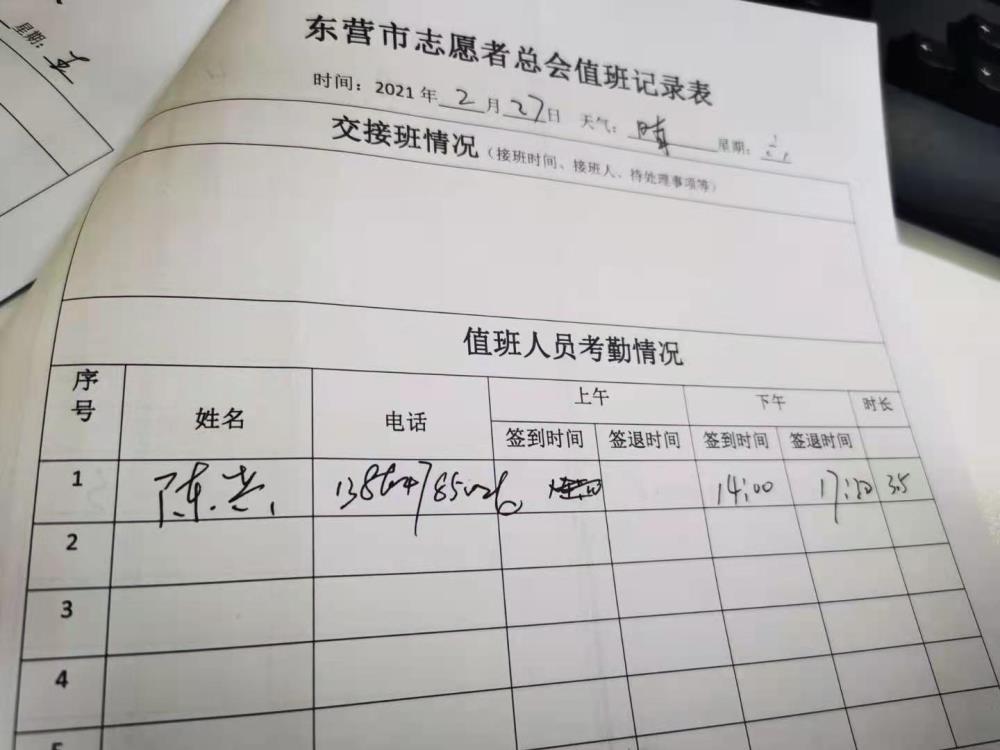 星期：五
东营市志愿者总会值班记录表
时间：2021年2月27日 天气：晴 星期：
交接班情况（接班时间、接班人、待处理事项等）
值班人员考勤情况
序号 姓名 电话 上午 下午 时长
签到时间 签退时间 签到时间 签退时间
1 陈 14:00 17:30 3.5
2
3
4
5